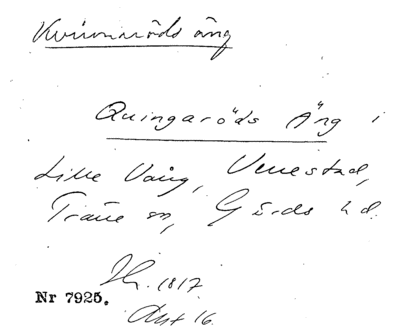 Kvinnaröds äng
Quingaröds Äng i
Lille Vång, Venestad,
Träne sn, Gärds hd.
1817
Nr 7925.
Akt 16.